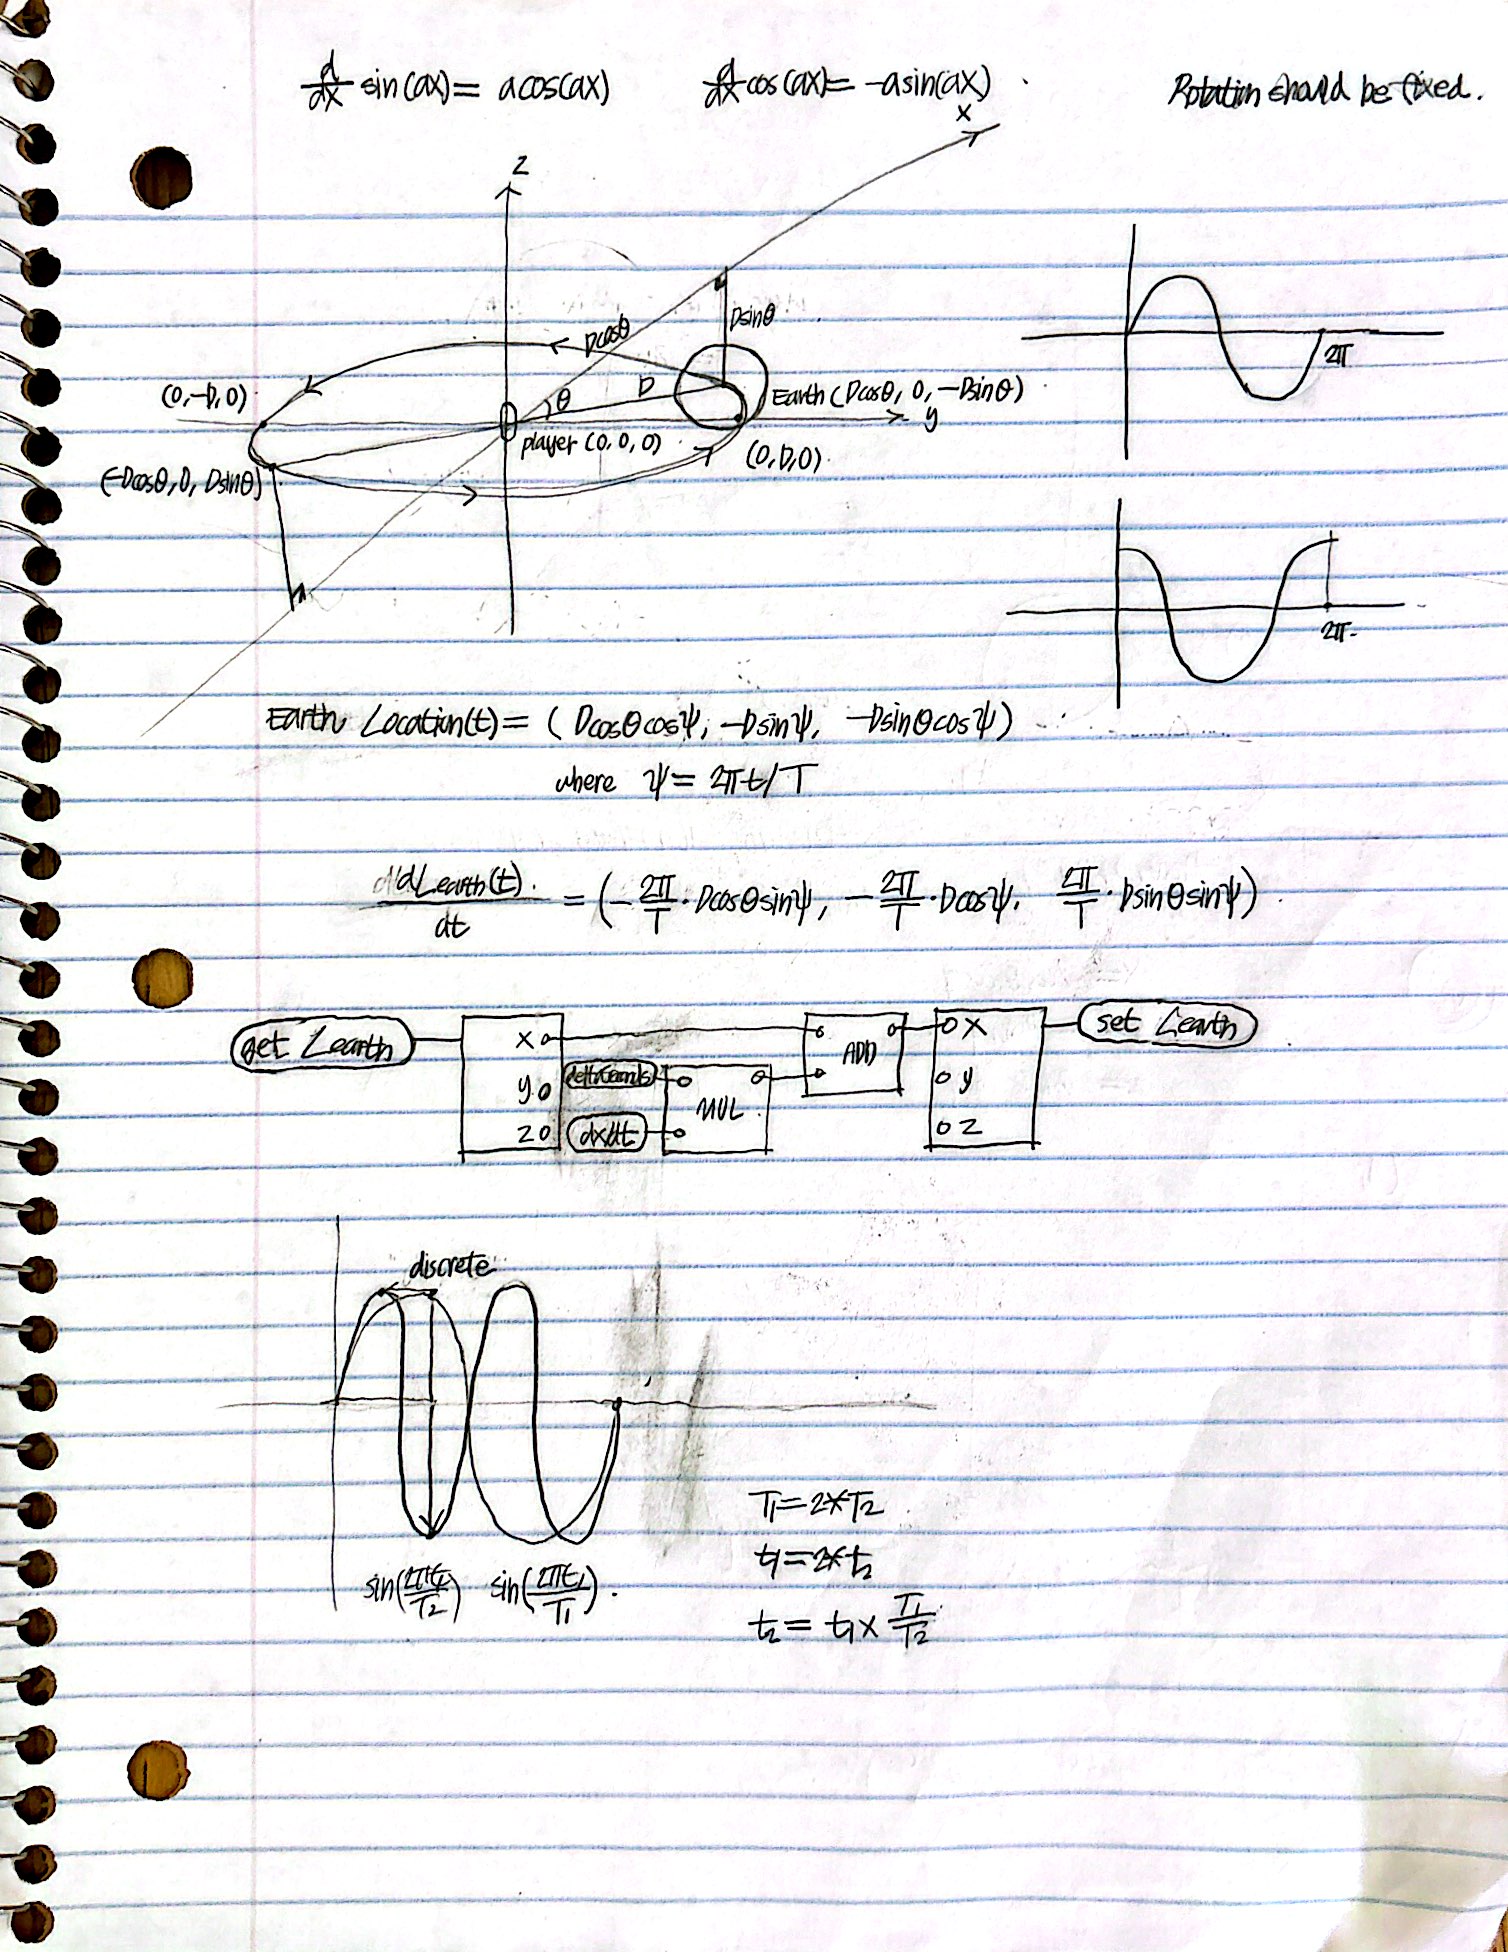 d/dx sin(ax) = acos(ax)   d/dx cos(ax) = -asin(ax)   Rotation should be fixed.
x
z
Dsinθ
Dcosθ
2π
D
(0,-D,0)
θ
Earth (Dcosθ, 0, -Dsinθ)
y
player (0, 0, 0)
(0,D,0)
(-Dcosθ, 0, Dsinθ)
2π
Earth Location(t) = (Dcosθcosψ, -Dsinψ, -Dsinθcosψ)
where ψ = 2πt/T
dLearth(t)/dt = (-2π/T·Dcosθsinψ, -2π/T·Dcosψ, 2π/T·Dsinθsinψ)
get Learth   x   ADD   x   set Learth
y   deltaSeconds   MUL   y
z   dx/dt   z
discrete
T1=2*T2
t1=2*t2
sin(2πt2/T2)   sin(2πt1/T1)
t2 = t1 × T1/T2